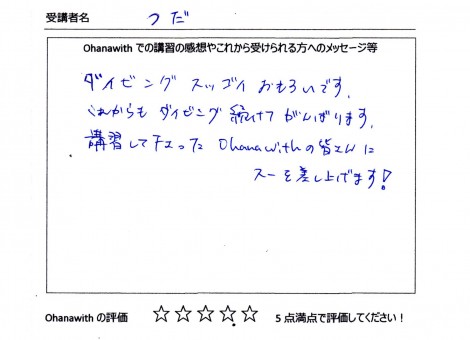 受講者名 つだ
Ohanawith での講習の感想やこれから受けられる方へのメッセージ等
ダイビング スッゴイ おもろいです。
これからも ダイビング 続けて がんばります。
講習して下さった Ohanawithの皆さんに
スーを差し上げます!
Ohanawith の評価 ☆☆☆☆☆ 5点満点で評価してください!